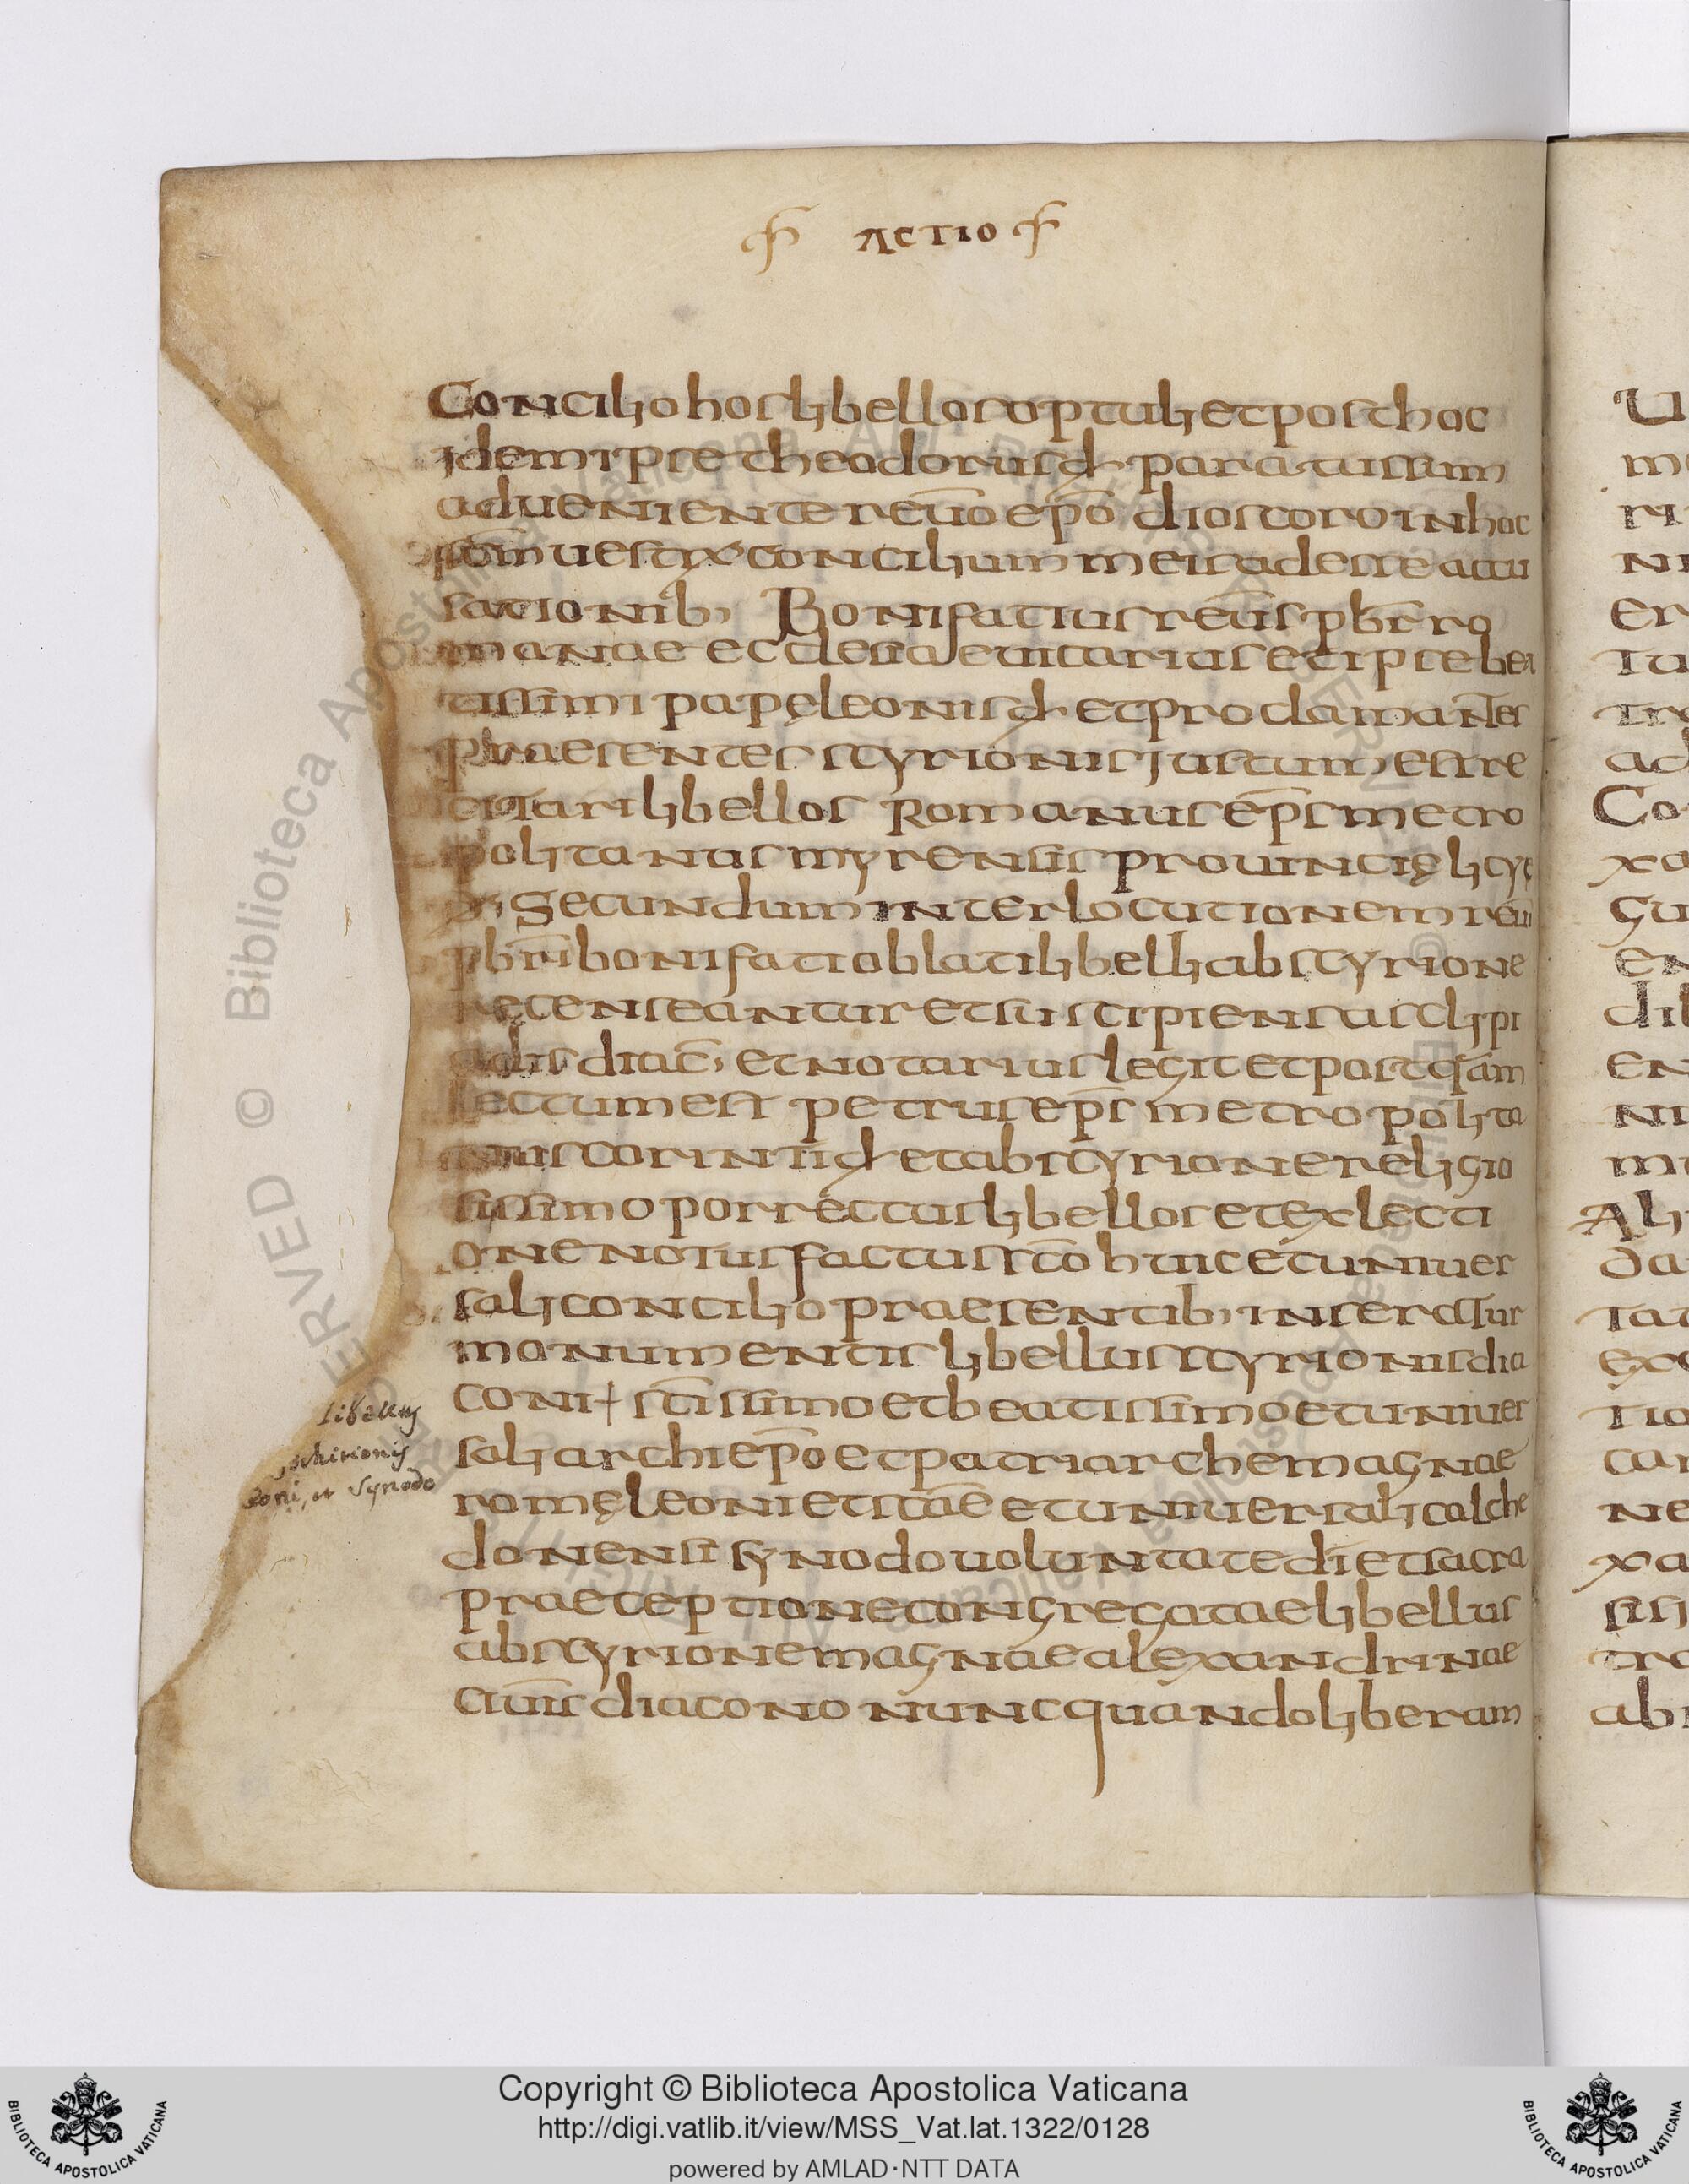 ACTIO
Concilio hos libellos optuli et post hoc
idem ipse theodorus dx paratus sum
adueniente reūo epō dioscoro in hoc
scm uestrx concilium meis adesse accu
sationib; Bonifatius reūs pbr ro
manae ecclesiae uicarius et ipse bea
tissimi papę leonis dx et proclamantes
praesentes scyrionis iustum esse re
citari libellos Romanus eps metro
politanus myrensis prouincię licyę
dx Secundum interlocutionem reūi
pbri bonifati oblati libelli ab scyrione
recenseantur et suscipiens asclipi
adis diac̄ et notarius legit et postqam
lectum est petrus eps metropolita
nus corinti dx et ab scyrione religio
sissimo porrectus libellos et ex lecti
one notus factus scō huic et uniuer
sali concilio praesentib; inseratur
monumentis libellus scyrionis dia
coni + sctissimo et beatissimo et uniuer
sali archiepō et patriarche magnae
romę leoni et sctāe et uniuersali calche
donensi synodo uoluntate dī et sacra
praeceptione congregatae libellus
ab scyrione magnae alexandrinae
ciuīs diacono nunc quando liberam
libellus
schirionis
coni, et synodo
U
m
ri
ni
er
tu
tro
ad
Co
xa
gu
en
dil
en
ni
mu
Ali
da
tat
exc
tio
car
ne
xa
sisi
tro
abi
© Biblioteca Apostolica Vaticana
Copyright © Biblioteca Apostolica Vaticana
http://digi.vatlib.it/view/MSS_Vat.lat.1322/0128
powered by AMLAD·NTT DATA
BIBLIOTECA APOSTOLICA VATICANA
BIBLIOTECA APOSTOLICA VATICANA